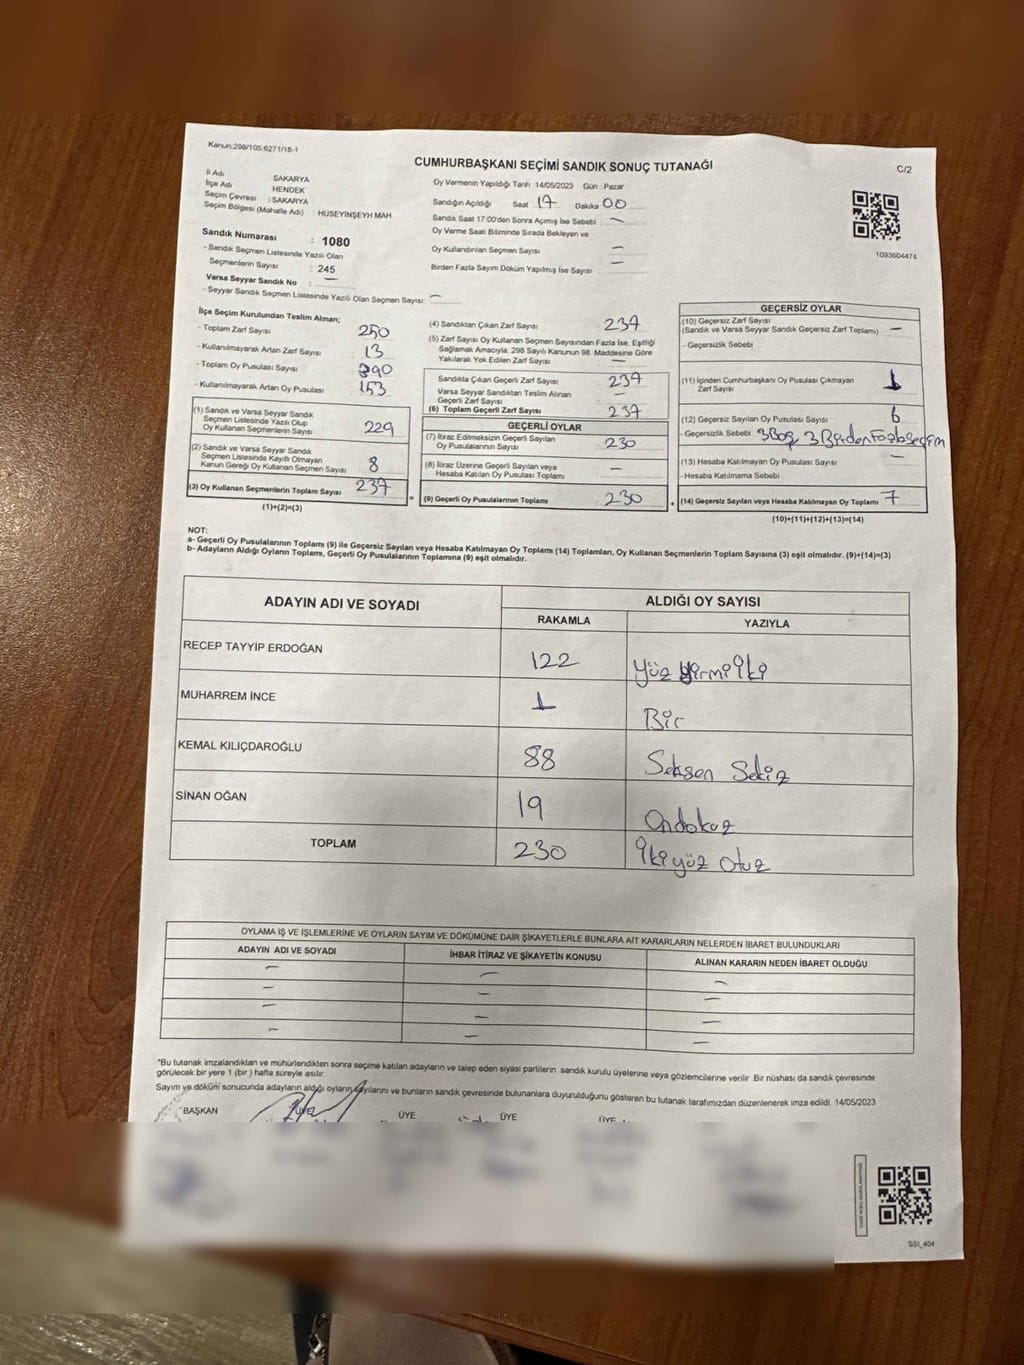 Kanun:298/105.6271/18-1
CUMHURBAŞKANI SEÇİMİ SANDIK SONUÇ TUTANAĞI
C/2
İl Adı SAKARYA
İlçe Adı HENDEK
Seçim Çevresi : SAKARYA
Seçim Bölgesi (Mahalle Adı) HUSEYINŞEYH MAH.
Oy Vermenin Yapıldığı Tarih 14/05/2023 Gün Pazar
Sandığın Açıldığı Saat 17 Dakika 00
Sandık Saat 17:00'den Sonra Açılmış İse Sebebi : —
Oy Verme Saati Bitiminde Sırada Bekleyen ve
Oy Kullandırılan Seçmen Sayısı —
Birden Fazla Sayım Döküm Yapılmış İse Sayısı : —
1093604474
Sandık Numarası : 1080
- Sandık Seçmen Listesinde Yazılı Olan
Seçmenlerin Sayısı : 245
Varsa Seyyar Sandık No : —
- Seyyar Sandık Seçmen Listesinde Yazılı Olan Seçmen Sayısı: —
İlçe Seçim Kurulundan Teslim Alınan;
- Toplam Zarf Sayısı 250
- Kullanılmayarak Artan Zarf Sayısı 13
- Toplam Oy Pusulası Sayısı 390
- Kullanılmayarak Artan Oy Pusulası 153
(1) Sandık ve Varsa Seyyar Sandık
Seçmen Listesinde Yazılı Olup
Oy Kullanan Seçmenlerin Sayısı 229
(2) Sandık ve Varsa Seyyar Sandık
Seçmen Listesinde Kayıtlı Olmayan
Kanun Gereği Oy Kullanan Seçmen Sayısı 8
(3) Oy Kullanan Seçmenlerin Toplam Sayısı 237
(1)+(2)=(3)
(4) Sandıktan Çıkan Zarf Sayısı 237
(5) Zarf Sayısı Oy Kullanan Seçmen Sayısından Fazla İse, Eşitliği
Sağlamak Amacıyla, 298 Sayılı Kanunun 98. Maddesine Göre
Yakılarak Yok Edilen Zarf Sayısı —
Sandıkta Çıkan Geçerli Zarf Sayısı 237
Varsa Seyyar Sandıktan Teslim Alınan
Geçerli Zarf Sayısı —
(6) Toplam Geçerli Zarf Sayısı 237
GEÇERLİ OYLAR
(7) İtiraz Edilmeksizin Geçerli Sayılan
Oy Pusulası Sayısı 230
(8) İtiraz Üzerine Geçerli Sayılan veya
Hesaba Katılan Oy Pusulası Toplamı —
= (9) Geçerli Oy Pusulalarının Toplamı 230
GEÇERSİZ OYLAR
(10) Geçersiz Zarf Sayısı
(Sandık ve Varsa Seyyar Sandık Geçersiz Zarf Toplamı) —
- Geçersizlik Sebebi
(11) İçinden Cumhurbaşkanı Oy Pusulası Çıkmayan
Zarf Sayısı 1
(12) Geçersiz Sayılan Oy Pusulası Sayısı 6
- Geçersizlik Sebebi 3 Boş, 3 Birden Fazla Seçim
(13) Hesaba Katılmayan Oy Pusulası Sayısı —
- Hesaba Katılmama Sebebi
+ (14) Geçersiz Sayılan veya Hesaba Katılmayan Oy Toplamı 7
(10)+(11)+(12)+(13)=(14)
NOT:
a- Geçerli Oy Pusulalarının Toplamı (9) ile Geçersiz Sayılan veya Hesaba Katılmayan Oy Toplamı (14) Toplamları, Oy Kullanan Seçmenlerin Toplam Sayısına (3) eşit olmalıdır. (9)+(14)=(3)
b- Adayların Aldığı Oyların Toplamı, Geçerli Oy Pusulalarının Toplamına (9) eşit olmalıdır.
ADAYIN ADI VE SOYADI
ALDIĞI OY SAYISI
RAKAMLA YAZIYLA
RECEP TAYYİP ERDOĞAN 122 Yüz Yirmi İki
MUHARREM İNCE 1 Bir
KEMAL KILIÇDAROĞLU 88 Seksen Sekiz
SİNAN OĞAN 19 Ondokuz
TOPLAM 230 İkiyüz Otuz
OYLAMA İŞ VE İŞLEMLERİNE VE OYLARIN SAYIM VE DÖKÜMÜNE DAİR ŞİKAYETLERLE BUNLARA AİT KARARLARIN NELERDEN İBARET BULUNDUKLARI
ADAYIN ADI VE SOYADI İHBAR İTİRAZ VE ŞİKAYETİN KONUSU ALINAN KARARIN NEDEN İBARET OLDUĞU
— — —
— — —
— — —
— — —
*Bu tutanak imzalandıktan ve mühürlendikten sonra seçime katılan adayların ve talep eden siyasi partilerin sandık kurulu üyelerine veya gözlemcilerine verilir. Bir nüshası da sandık çevresinde
görülecek bir yere 1 (bir) hafta süreyle asılır.
Sayım ve döküm sonucunda adayların aldığı oyların sayılarını ve bunların sandık çevresinde bulunanlara duyurulduğunu gösteren bu tutanak tarafımızdan düzenlenerek imza edildi. 14/05/2023
BAŞKAN ÜYE ÜYE ÜYE
SSI_404